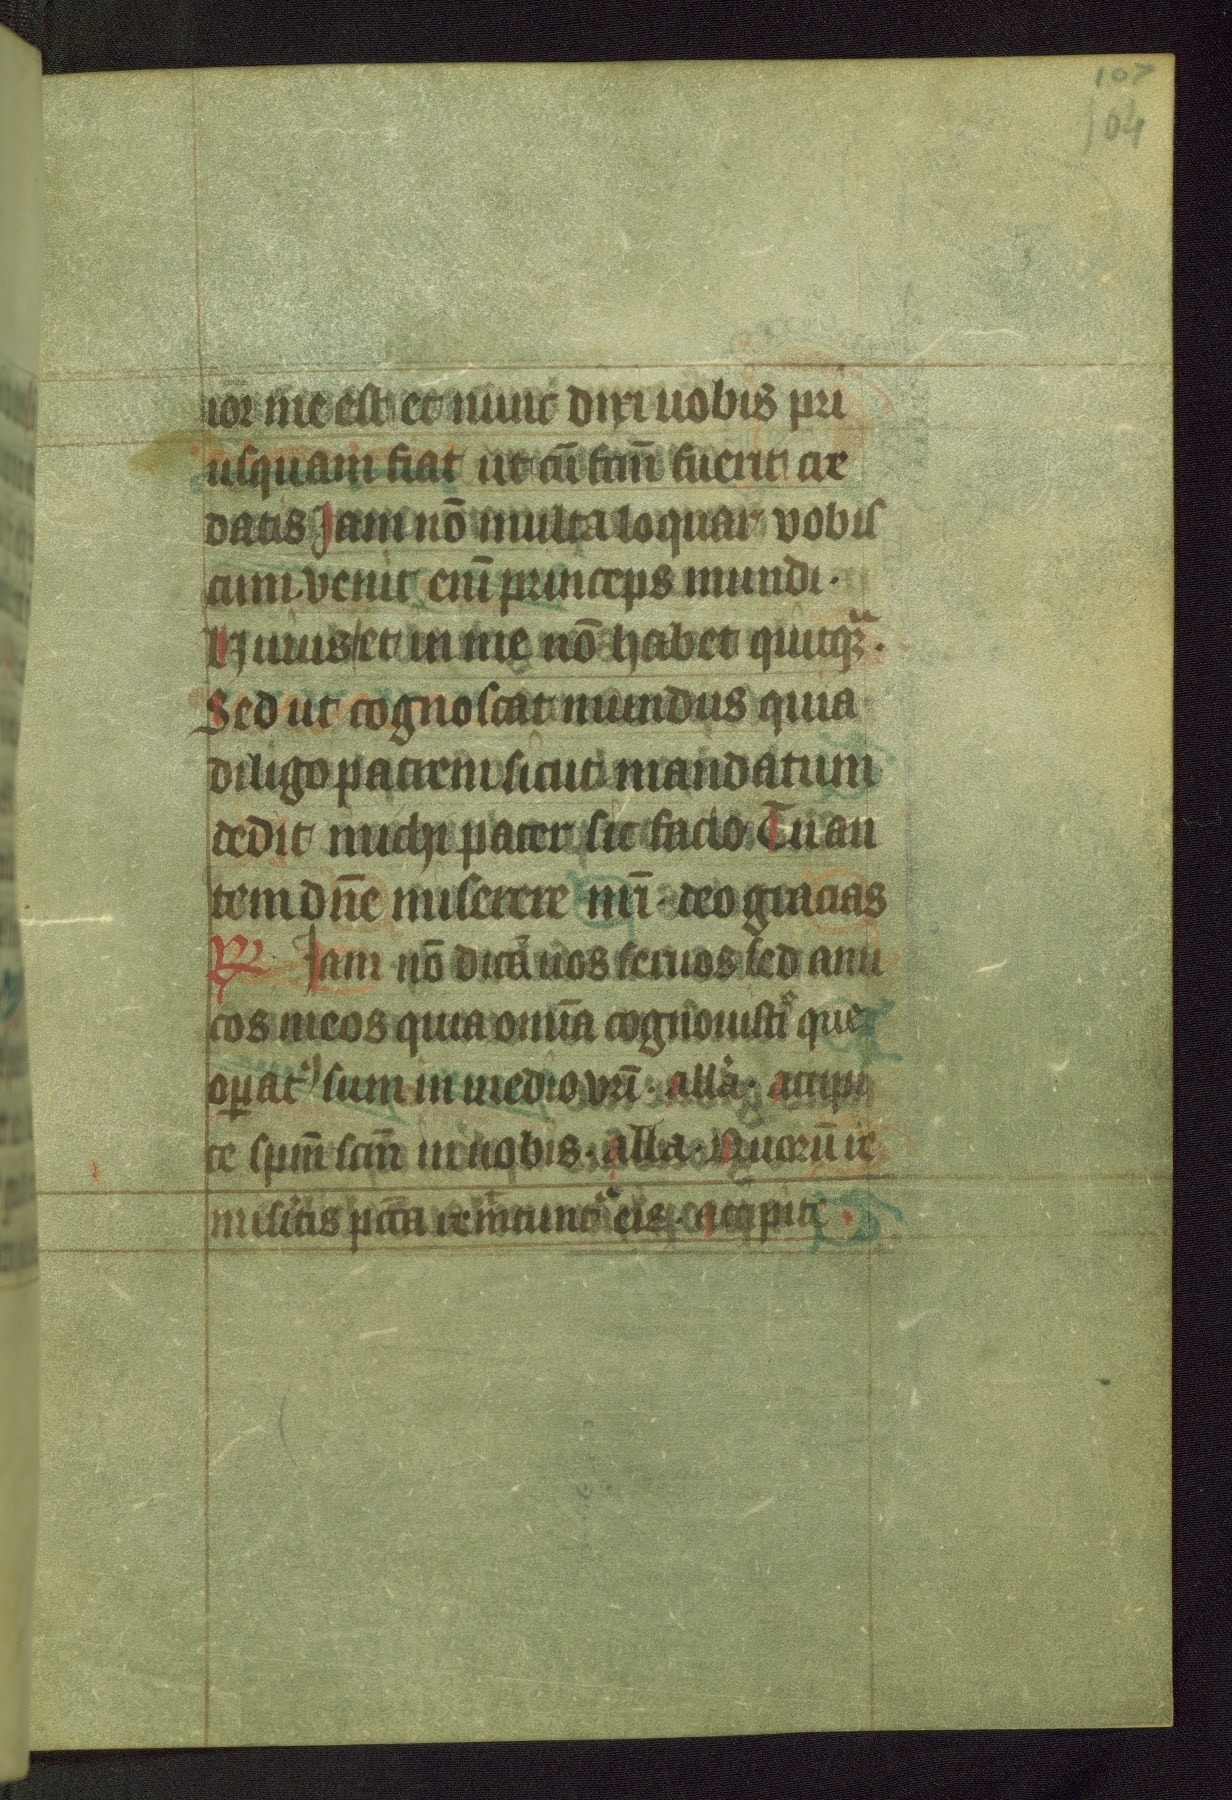 107
104
ior me est et nunc dixi uobis pri
usquam fiat ut cū fcm̄ fuerit cre
datis Jam nō multa loquar vobis
cum venit eni᷇ princeps mundi .
Huius et in me nō habet quitqᷓ .
Sed ut cognoscat mundus quia
diligo patrem sicut mandatum
dedit michi pater sic facio Tu au
tem dn̄e miserere nr̄i . deo gracias
R Jam nō dicā uos seruos sed ami
cos meos quia omīa cognouistis que
oꝑatꝰ sum in medio vr̄i . alla . accipi
te spm̄ scm̄ in uobis . alla . Quorū re
misitis pctā remittuntᷣ eis . accipite .